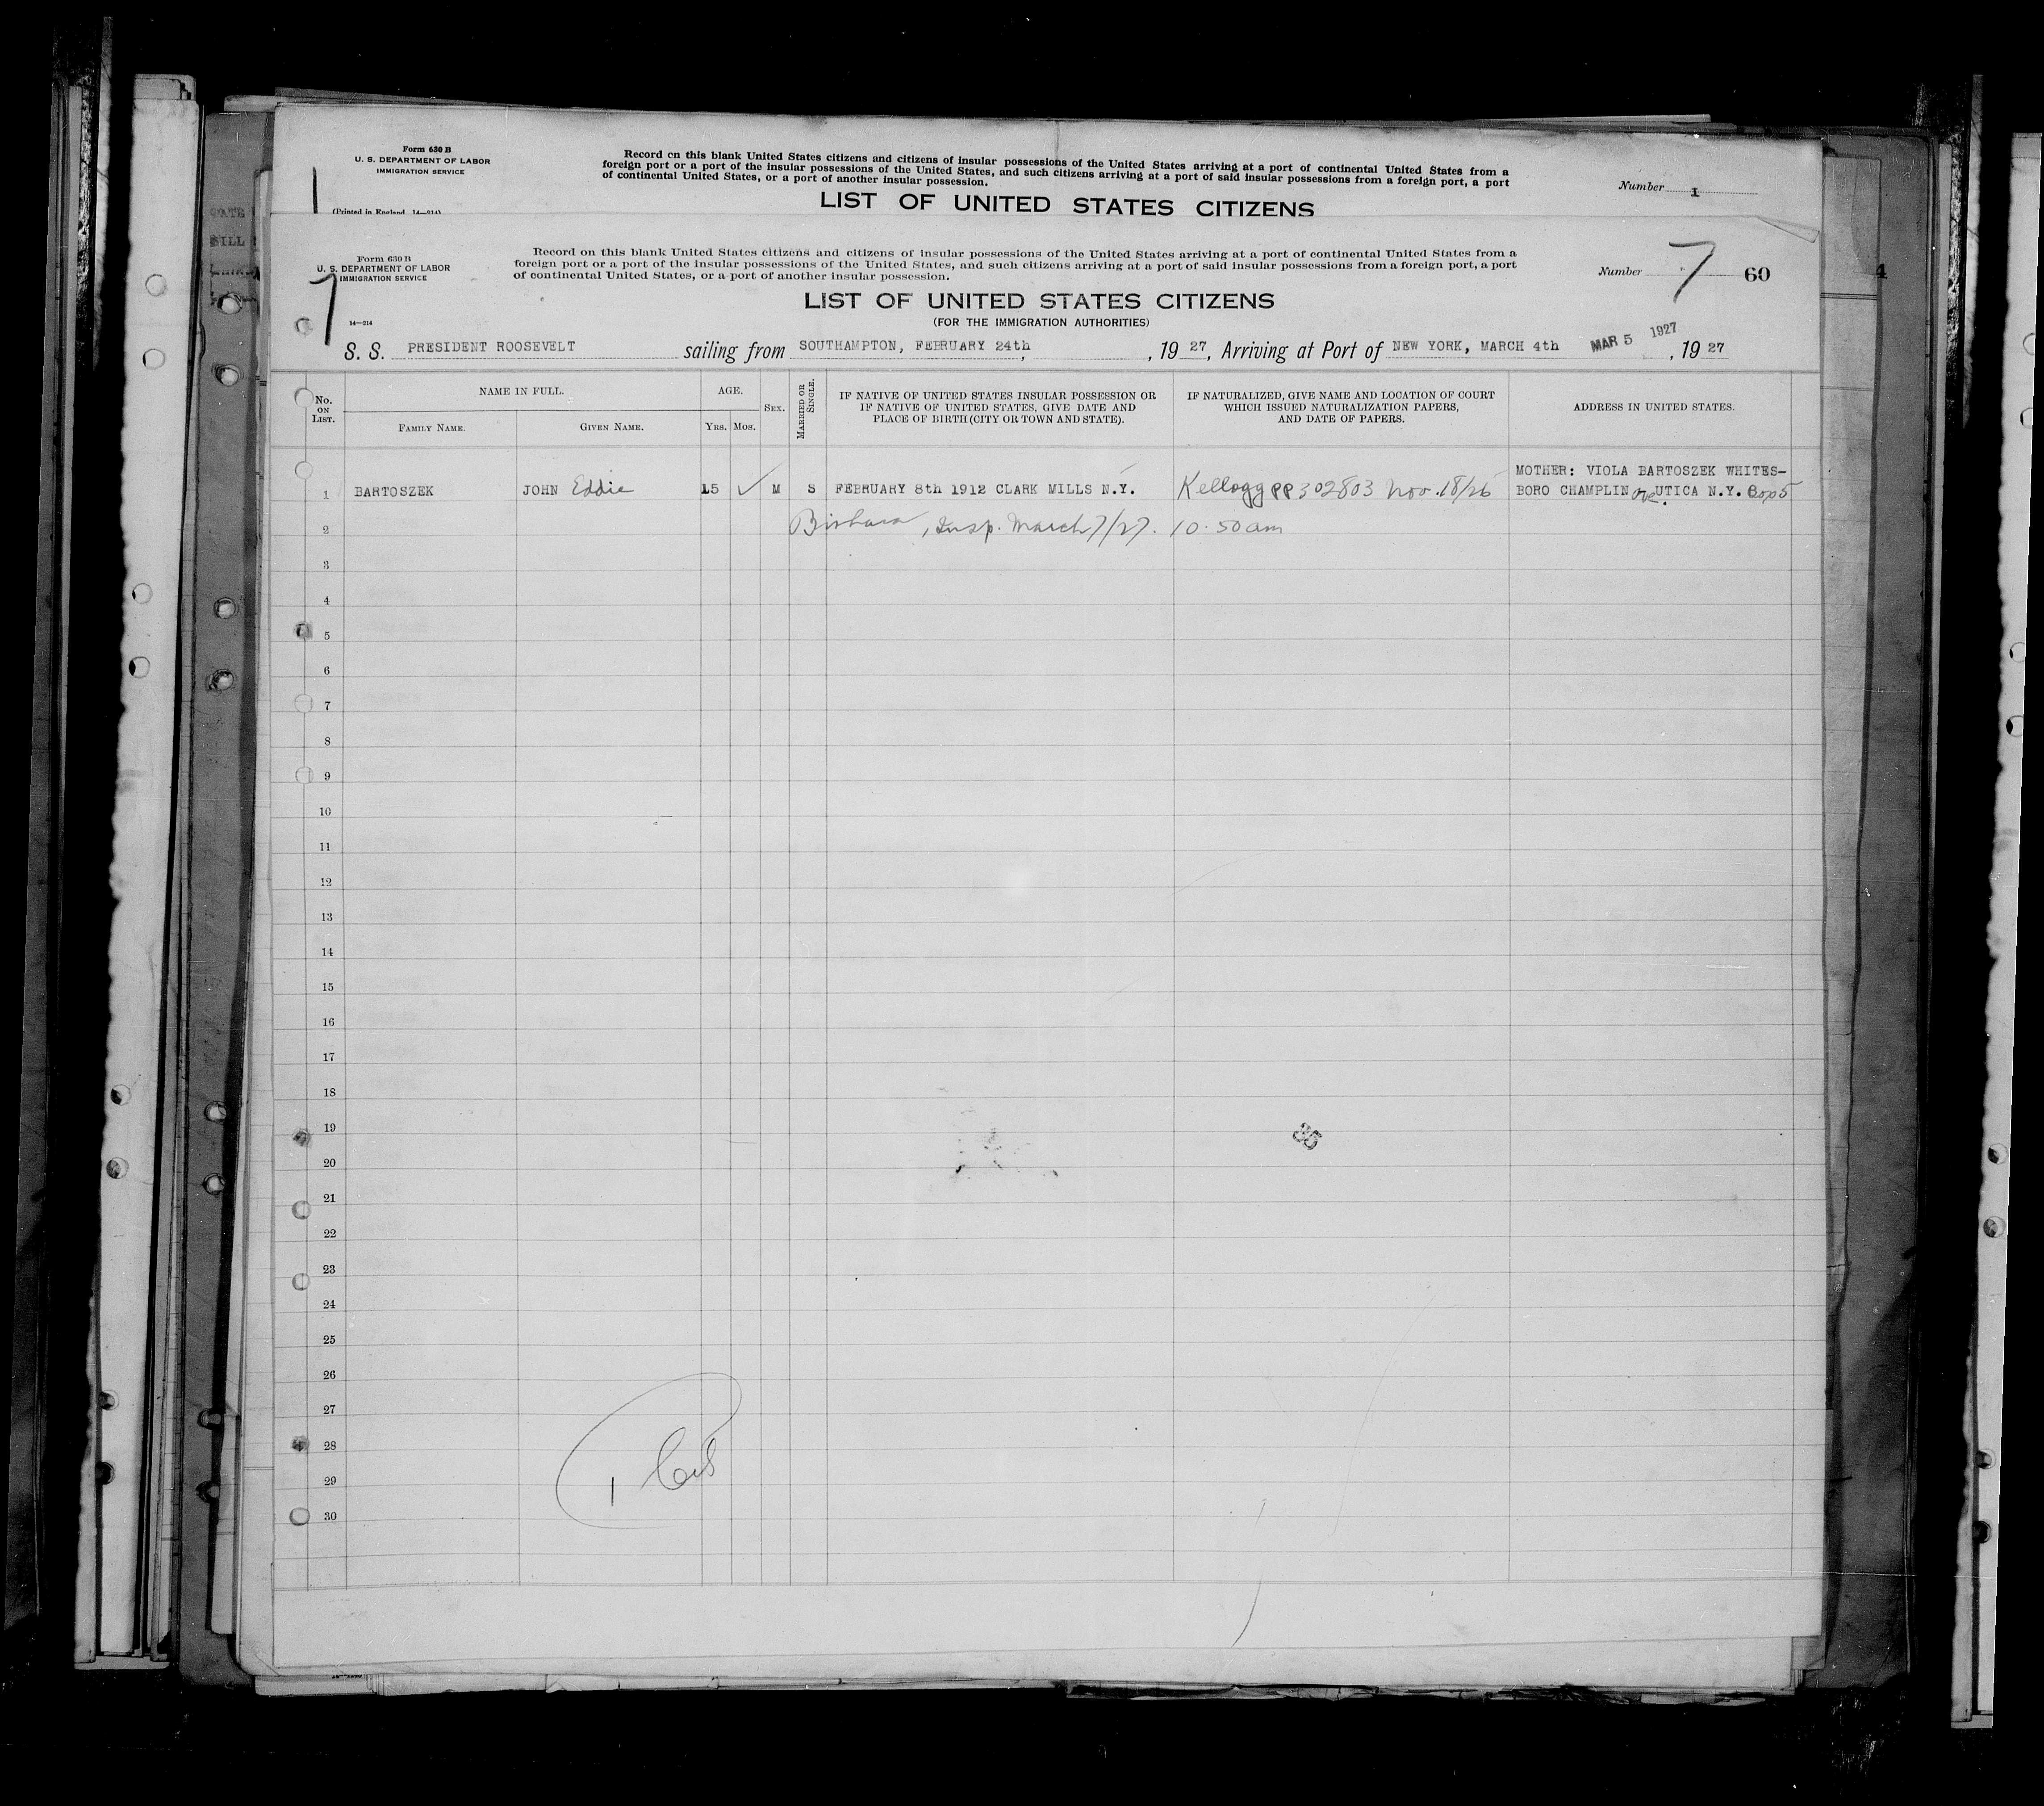 Form 630 B
U. S. DEPARTMENT OF LABOR
IMMIGRATION SERVICE
Record on this blank United States citizens and citizens of insular possessions of the United States arriving at a port of continental United States from a
foreign port or a port of the insular possessions of the United States, and such citizens arriving at a port of said insular possessions from a foreign port, a port
of continental United States, or a port of another insular possession.
Number 1
(Printed in England. 14—914)
LIST OF UNITED STATES CITIZENS
Form 630 B
U. S. DEPARTMENT OF LABOR
IMMIGRATION SERVICE
Record on this blank United States citizens and citizens of insular possessions of the United States arriving at a port of continental United States from a
foreign port or a port of the insular possessions of the United States, and such citizens arriving at a port of said insular possessions from a foreign port, a port
of continental United States, or a port of another insular possession.
Number 7 60
7
LIST OF UNITED STATES CITIZENS
14—914
(FOR THE IMMIGRATION AUTHORITIES)
S. S. PRESIDENT ROOSEVELT sailing from SOUTHAMPTON, FEBRUARY 24th, , 19 27, Arriving at Port of NEW YORK, MARCH 4th MAR 5 1927 , 19 27
No. ON LIST.
NAME IN FULL.
FAMILY NAME.
GIVEN NAME.
AGE.
YRS. MOS.
SEX.
MARRIED OR SINGLE.
IF NATIVE OF UNITED STATES INSULAR POSSESSION OR
IF NATIVE OF UNITED STATES, GIVE DATE AND
PLACE OF BIRTH (CITY OR TOWN AND STATE).
IF NATURALIZED, GIVE NAME AND LOCATION OF COURT
WHICH ISSUED NATURALIZATION PAPERS,
AND DATE OF PAPERS.
ADDRESS IN UNITED STATES.
MOTHER: VIOLA BARTOSZEK WHITES-
1 BARTOSZEK JOHN Eddie 15 ✓ M S FEBRUARY 8th 1912 CLARK MILLS N.Y. Kellogg PP 302803 Nov. 18/26 BORO CHAMPLIN ave. UTICA N.Y.
2 Insp. March 7/27. 10.50 am
3
4
5
6
7
8
9
10
11
12
13
14
15
16
17
18
19
20
21
22
23
24
25
26
27
28
29
30
1